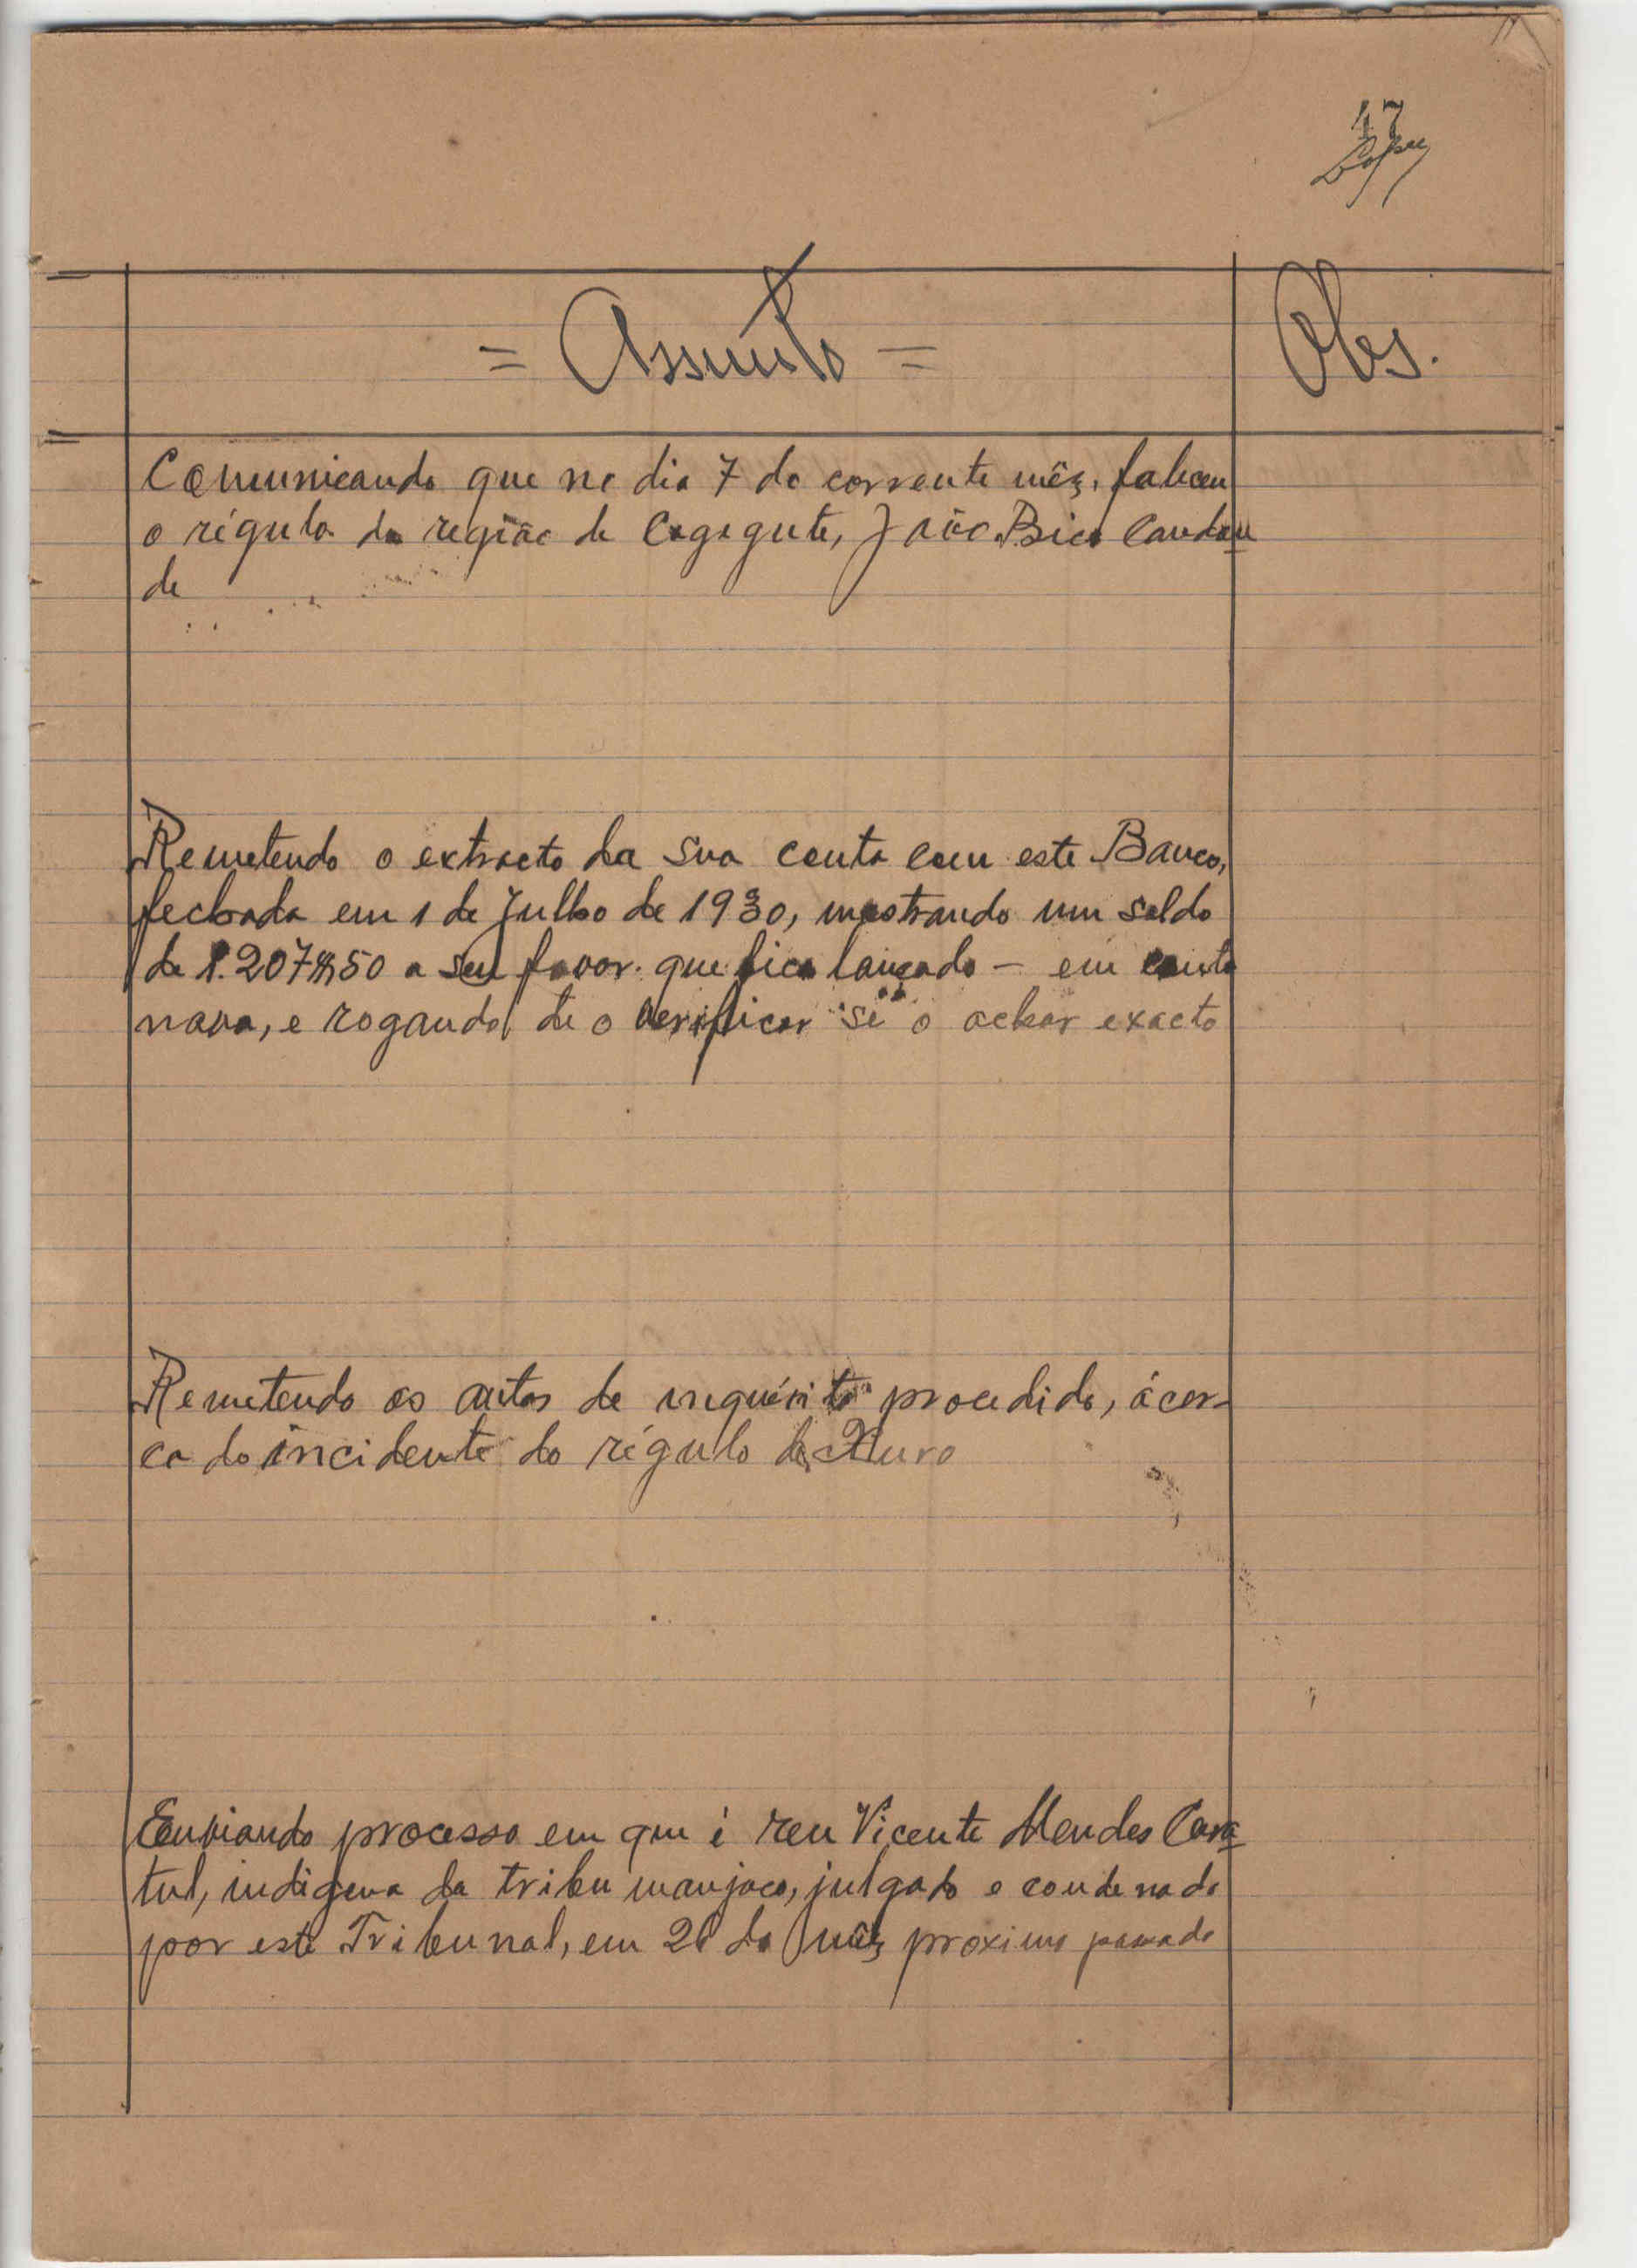 17
= Assunto =
Obs.
Comunicando que no dia 7 do corrente mês, faleceu
o régulo da região de Cagegute, João Bico Candau
de
Remetendo o extracto da sua conta com este Banco,
fechada em 1 de Julho de 1930, mostrando um saldo
de 1.207$50 a seu favor que fica lançado — em conta
nova, e rogando de o verificar se o achar exacto
Remetendo os autos de inquérito procedido, ácer-
ca do incidente do régulo de
Enviando processo em que é reu Vicente Mendes Cara
tul, indigena da tribu manjaco, julgado e condenado
por este Tribunal, em do mês proximo passado